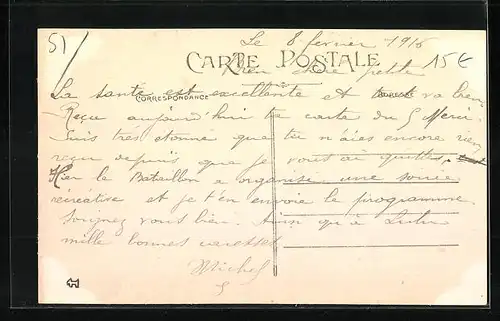 51
Le 8 février 1915
15€
CARTE POSTALE
Bien chère petite
La santé est excellante et tout va bien.
CORRESPONDANCE
Reçu aujourd'hui ta carte du 5 Merci.
Suis très étonné que tu n'aies encore rien
reçu depuis que je vous ai quittés.
Hier le Bataillon a organisé une soirée
récréative et je t'en envoie le programme
Soignez vous bien. Ainsi qu'à Lulu
mille bonnes caresses
Michel